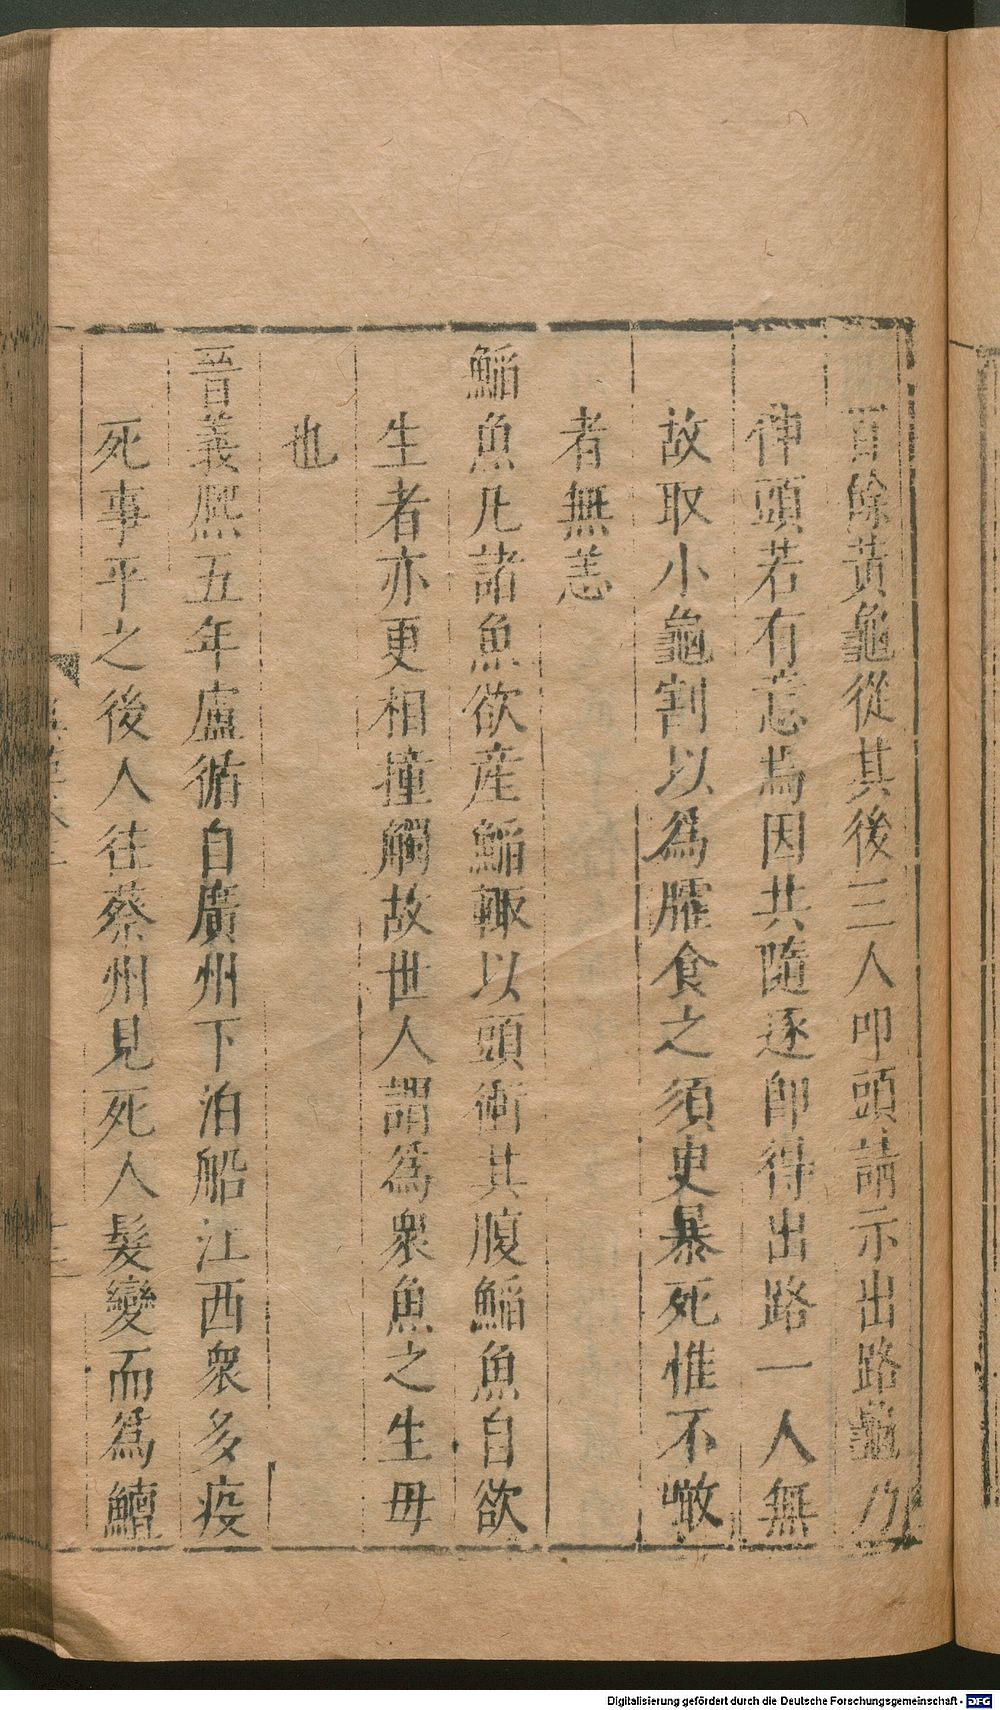 百餘黃龜從其後三人叩頭請示出路龜乃
伸頭若有意焉因共隨逐即得出路一人無
故取小龜割以為臛食之須臾暴死惟不噉
者無恙
鯔魚凡諸魚欲産鯔輙以頭衝其腹鯔魚自欲
生者亦更相撞觸故世人謂爲衆魚之生母
也
晉義熙五年盧循自廣州下泊船江西衆多疫
死事平之後人往蔡州見死人髮變而爲鱣
Digitalisierung gefördert durch die Deutsche Forschungsgemeinschaft - DFG